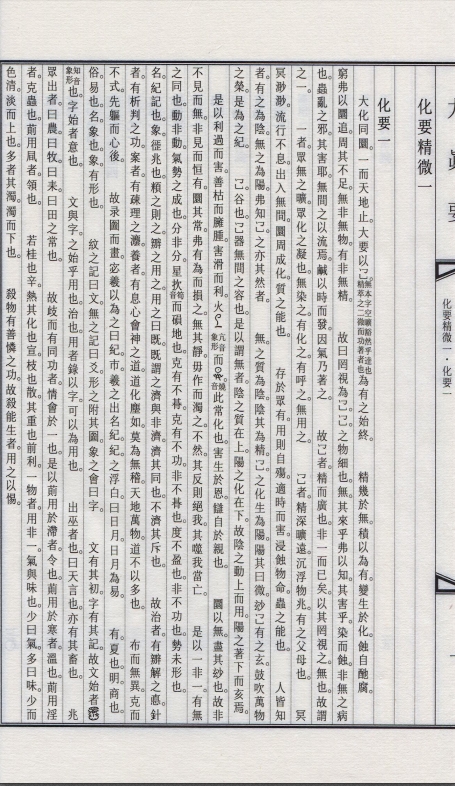 化要精微一
化要一
大化同圜一而天地止大要以㔾為有之始終　精幾於無積以為有變生於化蝕自酏腐
窮弗以圜追周其不足無非無物有非無精　故曰罔視為㔾㔾之物細也無其來乎弗以知其害乎染而蝕非無之病
也蟲亂之邪其害耶無間之以流焉鹹以時而發因氣乃著之　故㔾者精而廣也非一而已矣以其罔視之無也故謂
之一　一者眾無之曠眾化之凝也無染之有化之有呼之無用之　㔾者精深曠遠沉浮物兆有之父母也　冥
冥渺渺流行不息出入無間圜周成化質之能也　存於眾有用則自殤適時而害浸蝕物命蟲之能也　人皆知
者有之為陰無之為陽弗知㔾之亦其然者　無之質為陰陰其為精㔾之化生為陽陽其曰微紗㔾有之玄鼓吹萬物
之榮是為之紀　㔾谷也㔾器無間之容也是以謂無者陰之質在上陽之化在下故陰之動上而用陽之著下而亥焉
是以利過而害善枯而臃腫害滑而利火　而　此常化也害生於恩讎自於親也　圜以無盡其紗也故非
不見而無非見而恒有圜其常弗有為而損之無其靜毋作而濁之不然其反則絕我其噬我當亡　是以一非一有無
之同也動非動氣勢之成也分非分星　而碩地也克有不　克有不功非不　也度不盈也非不功也勢未形也
名紀記也象徑兆也賴之則之辦之用之用之曰既既謂之濟與非濟濟其同也不濟其斥也　故治者有辦解之憄針
者有析判之功案者有疎理之灋養者有息心會神之道道化塵如莫為無稽天地萬物道不以多也　布而無異克而
不式先軀而心後　故录圖而畫宓羲以為之曰紀市羲之出名紀紀之浮白曰日月日月為易　有夏也明商也
俗易也名象也象有形也　紋之記曰文無之記曰爻形之附其圖象之會曰字　文有其初字有其記故文始者
知音象形也字始者意也　文與字之始乎用也治也用者錄以字可以為用也　出巫者也曰天言也亦有其畜也　兆
眾出者曰農曰牧曰耒曰田之常也　故歧而有同功者情會於一也是以萠用於滯者令也萠用於寒者溫也萠用淫
者克蟲也萠用凬者領也　若桂也辛熱其化也宣枝也散其重也前利一物者用非一氣與味也少曰氣多曰味少而
色清淡而上也多者其濁濁而下也　殺物有善憐之功故殺能生者用之以惕
化要精微一・化要一